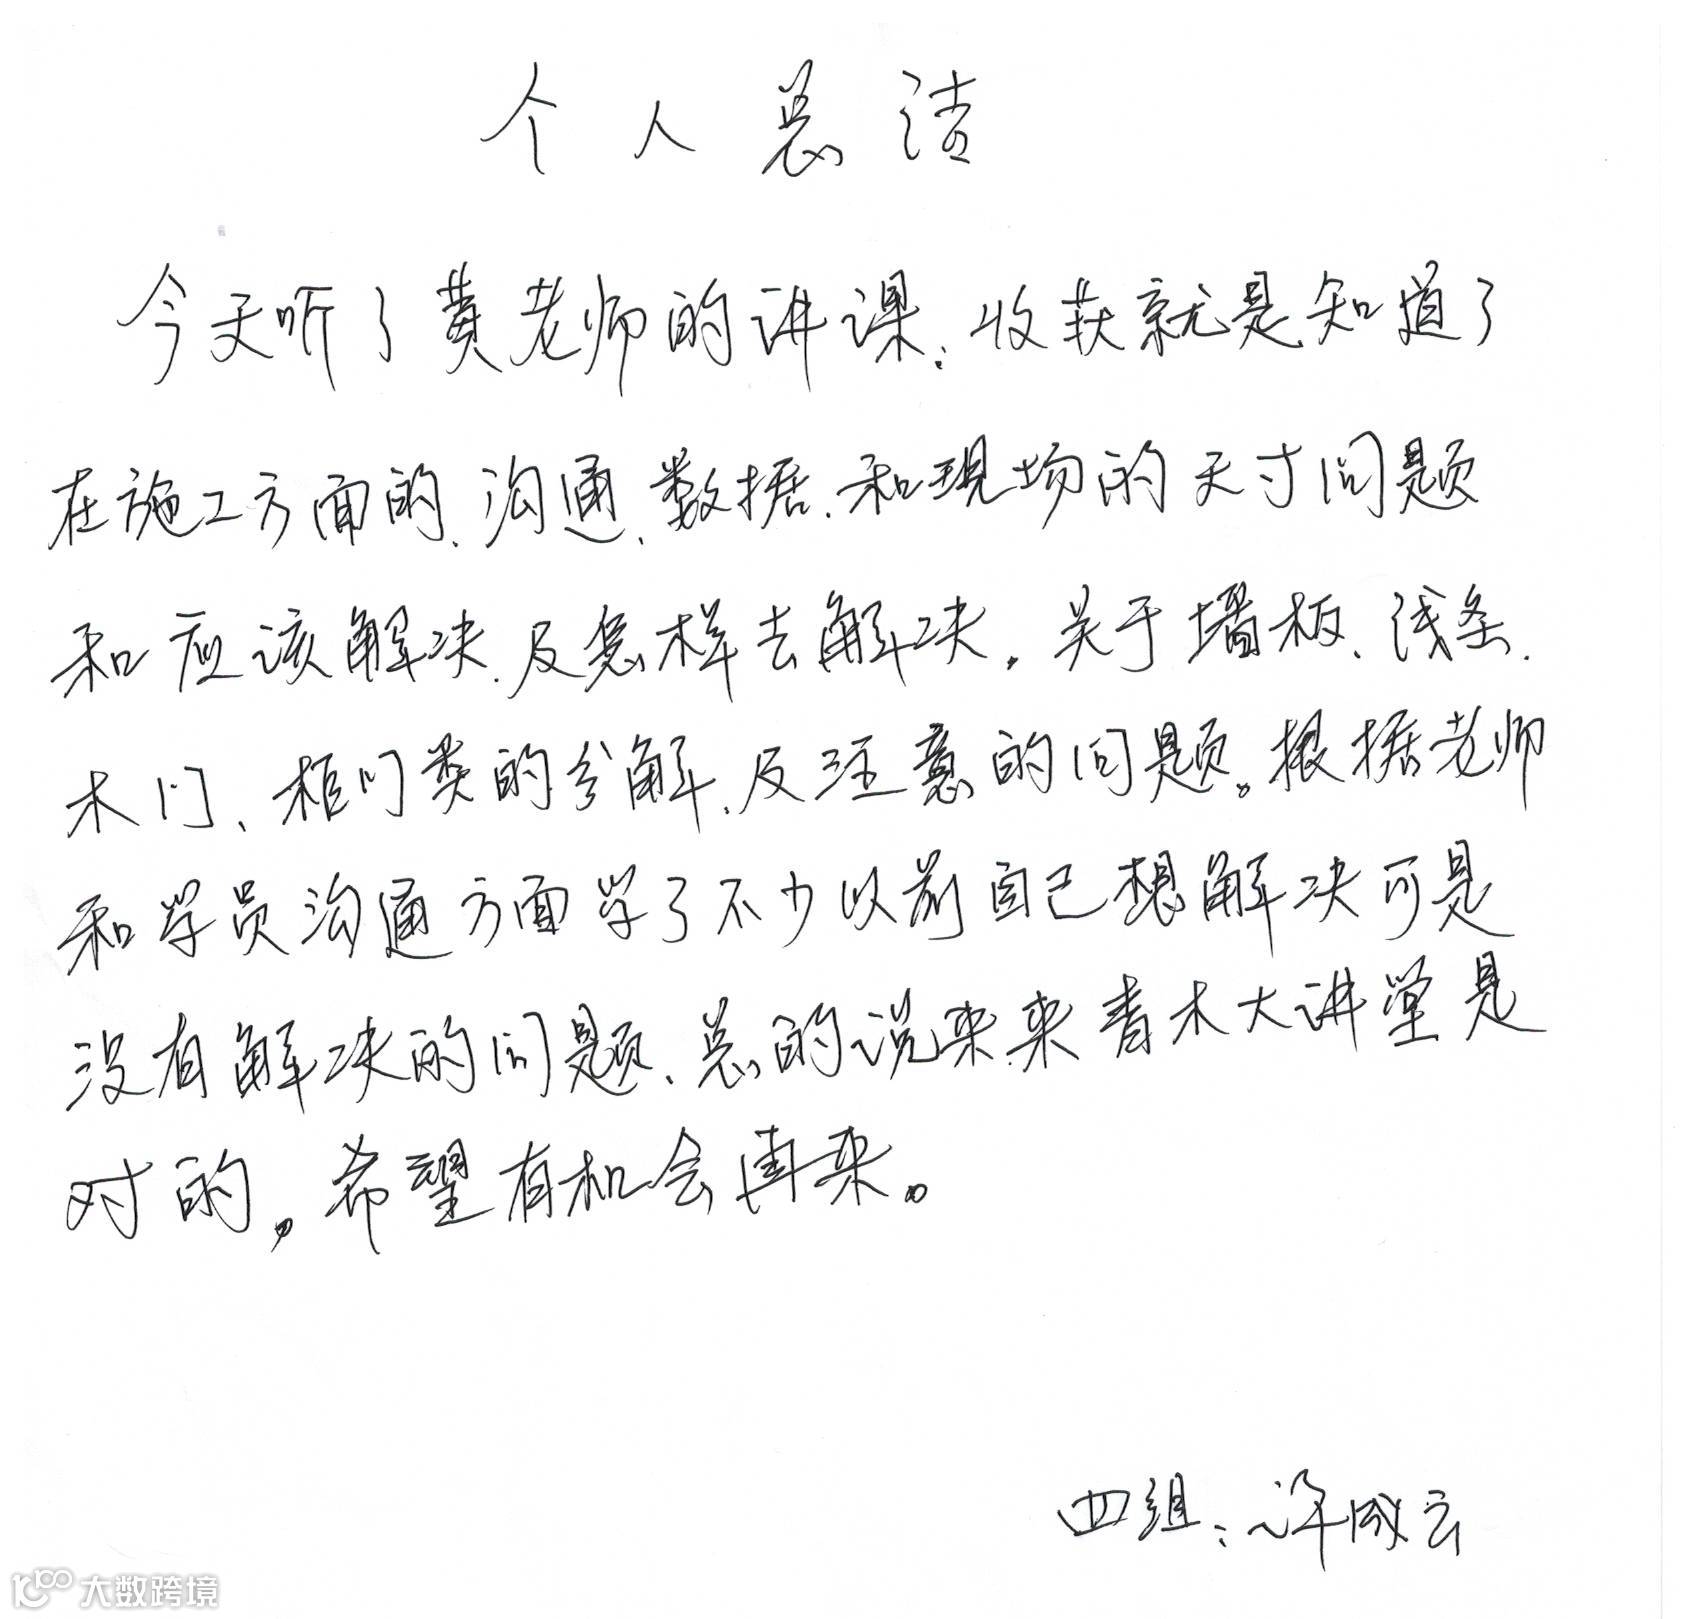 个人总结
今天听了黄老师的讲课:收获就是知道了
在施工方面的、沟通、数据、和现场的尺寸问题
和应该解决、及怎样去解决。关于墙板、线条、
木门、柜门类的分解、及注意的问题。根据老师
和学员沟通方面学了不少以前自己想解决可是
没有解决的问题、总的说来来青木大讲堂是
对的。希望有机会再来。
四组:许成云
大数跨境